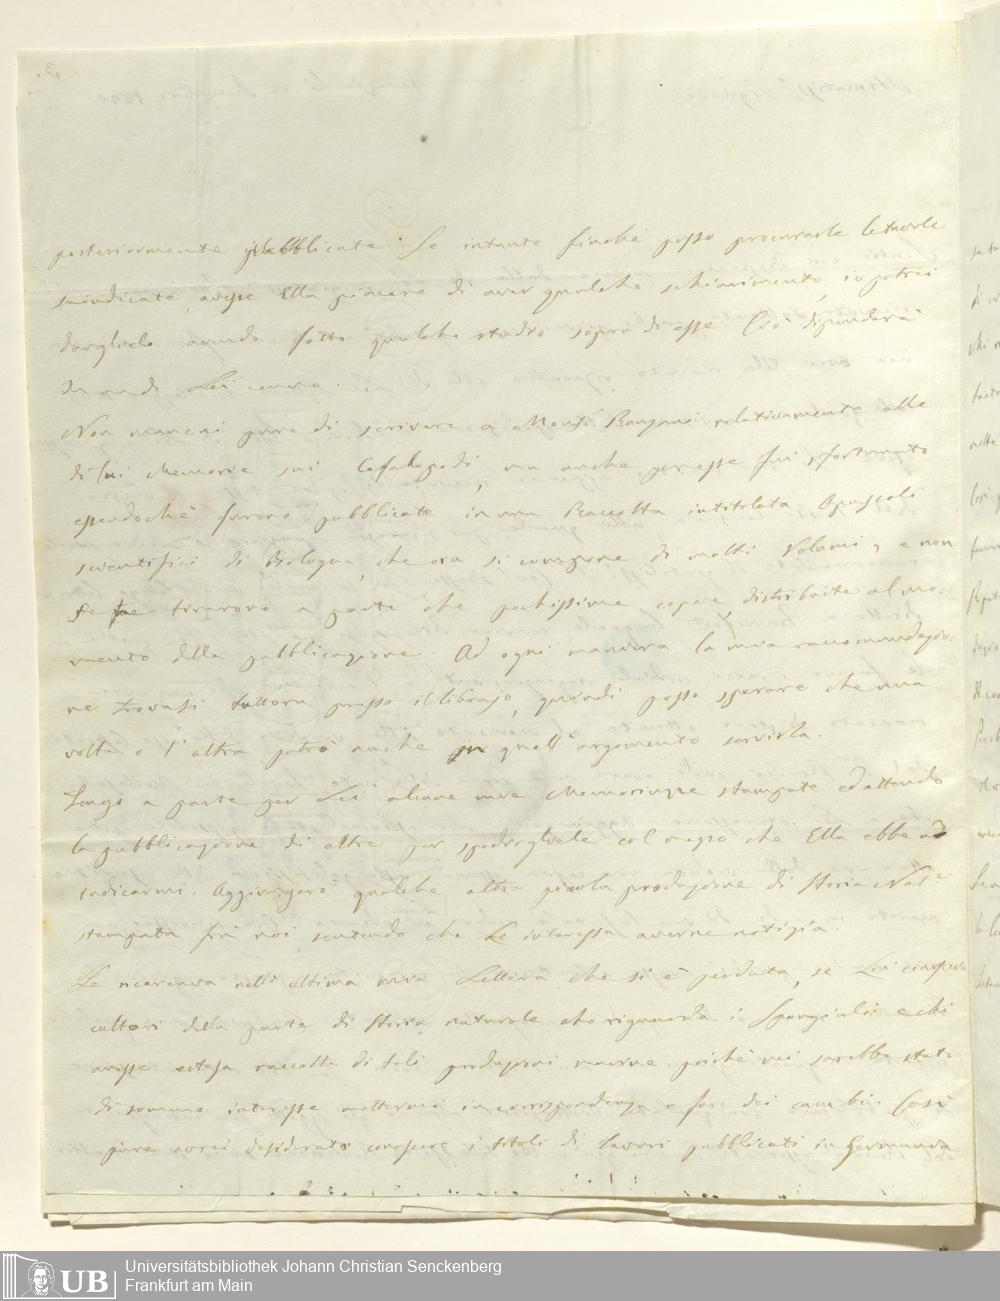 posteriormente pubblicate. Se intanto finchè posso procurarle le tavole
suindicate, avesse Ella piacere di aver qualche schiarimento, io potrei
darglielo avendo fatto qualche studio sopra di esse. Ciò dipenderà
da un di Lei cenno.
Non mancai pure di scrivere a Monsr Ranzani relativamente alle
di lui Memorie sui Cefalopodi, ma anche per esse fui sfortunato
essendochè furono pubblicate in una Raccolta intitolata Opuscoli
scientifici di Bologna, che ora si compone di molti Volumi, e non
se ne tirarono a parte che pochissime copie, distribuite al mo-
mento della pubblicazione. Ad ogni maniera la mia raccomandazio-
ne trovasi tuttora presso il librajo, quindi posso sperare che una
volta o l'altra potrò anche in quell'argomento servirla.
Tengo a parte per Lei alcune mie Memoriuzze stampate ed attendo
la pubblicazione di altre per spedirgliele col mezzo che Ella ebbe ad
indicarmi. Aggiungerò qualche altra piccola produzione di Storia Nat.e
stampata frà noi, sentendo che Le interessa averne notizia.
Le ricercava nell'ultima mia Lettera che si è perduta, se Lei conosceva
cultori della parte di Storia naturale che riguarda i Spongiali e chi
avesse estesa raccolta di tali produzioni marine poichè mi sarebbe stato
di sommo interesse mettermi in corrispondenza e far dei cambi. Così
pure avrei desiderato conoscere i titoli di lavori pubblicati in Germania
UB
Universitätsbibliothek Johann Christian Senckenberg
Frankfurt am Main